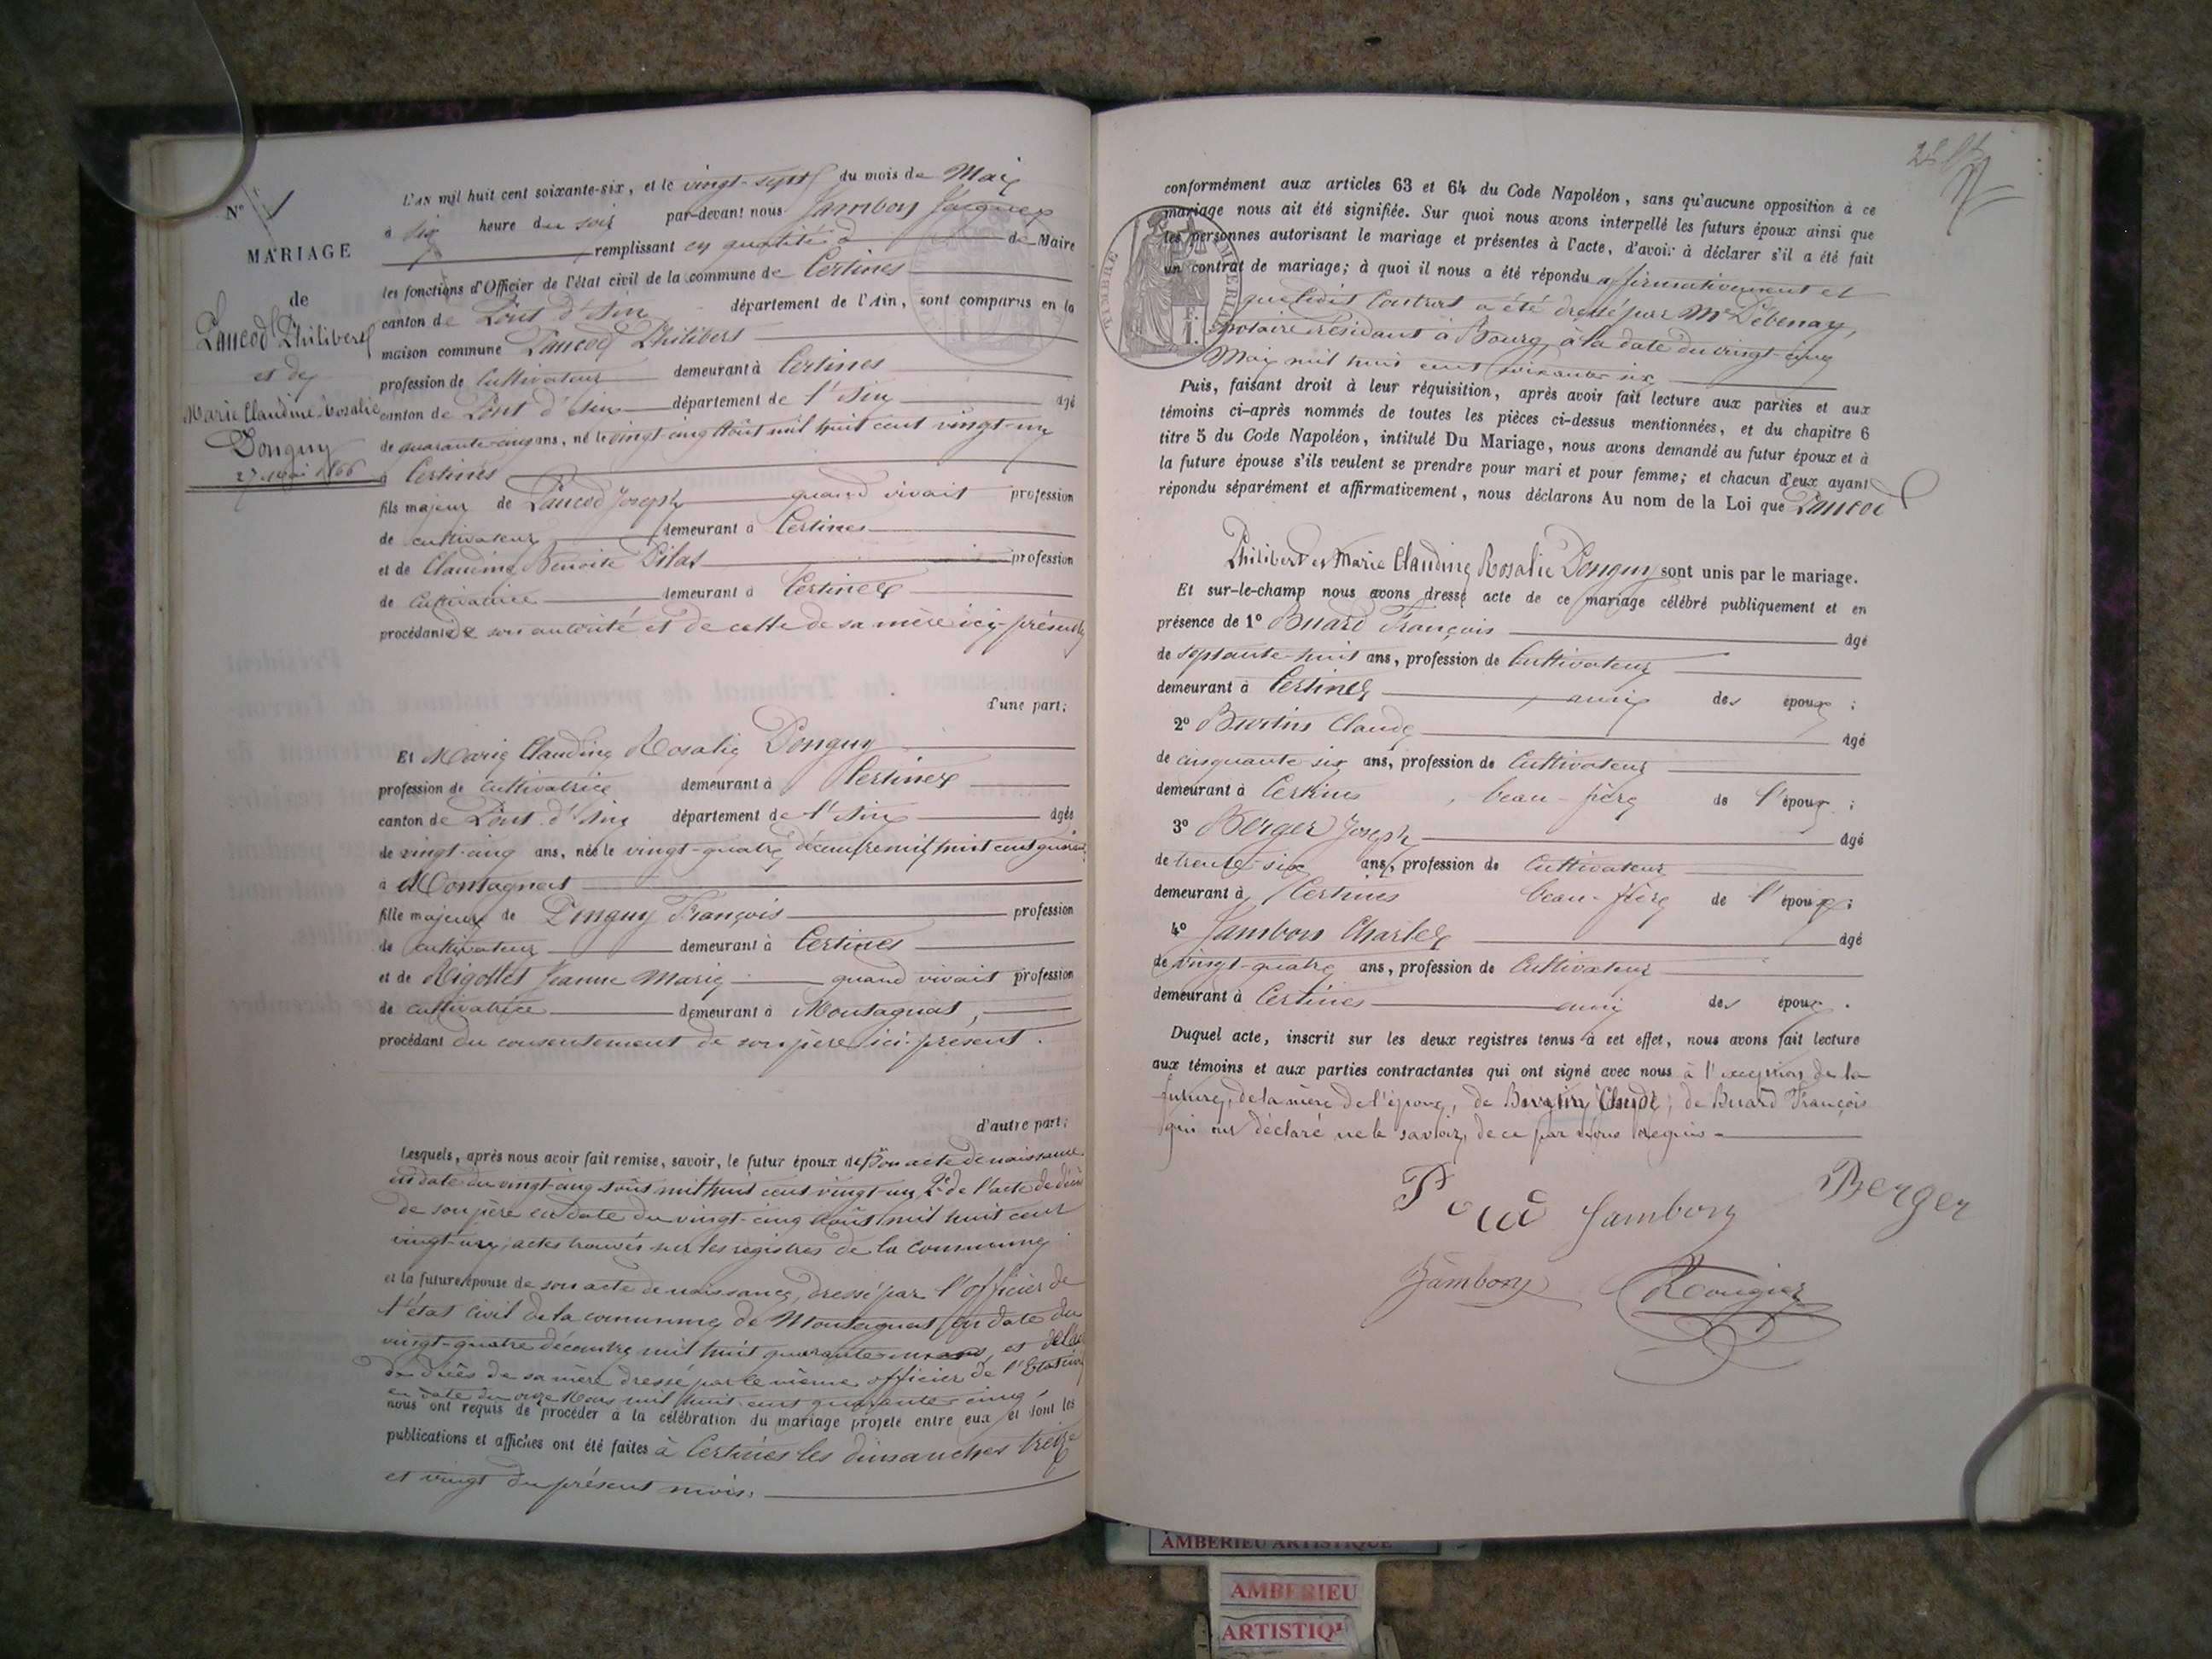 N° 1
MARIAGE
de
Paucod Philibert
et de
Marie Claudine Rosalie
Donguy
27 mai 1866
L'AN mil huit cent soixante-six, et le vingt-sept du mois de Mai
à six heure du soir par-devant nous Jambon Jacques
remplissant en qualité de Maire
les fonctions d'Officier de l'état civil de la commune de Certines
canton de Pont d'Ain département de l'Ain, sont comparus en la
maison commune Paucod Philibert
profession de Cultivateur demeurant à Certines
canton de Pont d'Ain département de l'Ain âgé
de quarante-cinq ans, né le vingt-cinq Août mil huit cent vingt-un
à Certines
fils majeur de Paucod Joseph quand vivait profession
de cultivateur demeurant à Certines
et de Claudine Benoite Pilas profession
de Cultivatrice demeurant à Certines
procédant de son autorité et de celle de sa mère ici-présente
d'une part;
Et Marie Claudine Rosalie Donguy
profession de Cultivatrice demeurant à Certines
canton de Pont d'Ain département de l'Ain âgée
de vingt-cinq ans, née le vingt-quatre décembre mil huit cent quarante
à Montagnat
fille majeure de Donguy François profession
de cultivateur demeurant à Certines
et de Rigollet Jeanne Marie quand vivait profession
de cultivatrice demeurant à Montagnat,
procédant du consentement de son père ici présent.
d'autre part;
Lesquels, après nous avoir fait remise, savoir, le futur époux de son acte de naissance
en date du vingt-cinq Août mil huit cent vingt-un, 2° de l'acte de décès
de son père en date du vingt-cinq Août mil huit cent
vingt-un, actes trouvés sur les registres de la commune
et la future épouse de son acte de naissance, dressé par l'officier de
l'état civil de la commune de Montagnat en date du
vingt-quatre décembre mil huit quarante et de l'acte
de décès de sa mère dressé par le même officier de l'Etat civil
en date du onze Mars mil huit cent quarante cinq,
nous ont requis de procéder à la célébration du mariage projeté entre eux et dont les
publications et affiches ont été faites à Certines les dimanches treize
et vingt du présent mois.
conformément aux articles 63 et 64 du Code Napoléon, sans qu'aucune opposition à ce
mariage nous ait été signifiée. Sur quoi nous avons interpellé les futurs époux ainsi que
les personnes autorisant le mariage et présentes à l'acte, d'avoir à déclarer s'il a été fait
un contrat de mariage; à quoi il nous a été répondu affirmativement et
que ledit Contrat a été dressé par Me Debenay,
Notaire résidant à Bourg, à la date du vingt-cinq
Mai mil huit cent soixante-six
TIMBRE IMPERIAL
1 F.
Puis, faisant droit à leur réquisition, après avoir fait lecture aux parties et aux
témoins ci-après nommés de toutes les pièces ci-dessus mentionnées, et du chapitre 6
titre 5 du Code Napoléon, intitulé Du Mariage, nous avons demandé au futur époux et à
la future épouse s'ils veulent se prendre pour mari et pour femme; et chacun d'eux ayant
répondu séparément et affirmativement, nous déclarons Au nom de la Loi que Paucod
Philibert et Marie Claudine Rosalie Donguy sont unis par le mariage.
Et sur-le-champ nous avons dressé acte de ce mariage célébré publiquement et en
présence de 1° Buard François âgé
de septante-huit ans, profession de Cultivateur
demeurant à Certines ami des époux;
2° Burtin Claude âgé
de cinquante-six ans, profession de Cultivateur
demeurant à Certines, beau-frère de l'époux;
3° Berger Joseph âgé
de trente-six ans, profession de Cultivateur
demeurant à Certines beau-frère de l'époux;
4° Jambon Charles âgé
de vingt-quatre ans, profession de Cultivateur
demeurant à Certines ami des époux.
Duquel acte, inscrit sur les deux registres tenus à cet effet, nous avons fait lecture
aux témoins et aux parties contractantes qui ont signé avec nous à l'exception de la
future, de la mère de l'époux, de Burtin Claude; de Buard François
qui ont déclaré ne le savoir, de ce par nous requis
Jambon Berger
Jambon Rougier
AMBERIEU ARTISTIQUE
AMBERIEU
ARTISTIQ